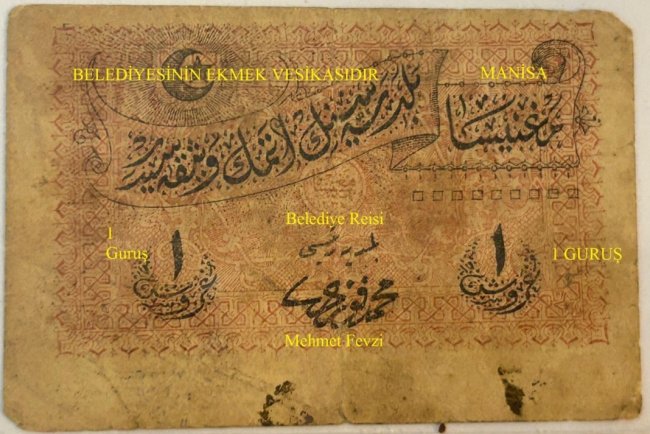 BELEDİYESİNİN EKMEK VESİKASIDIR MANİSA
مغنيسا
بلديه سنك اتمك وثيقه سيدر
Belediye Reisi
1
Guruş
1 GURUŞ
١ ١
غروش غروش
بلديه رئيسى
محمد فوزى
Mehmet Fevzi